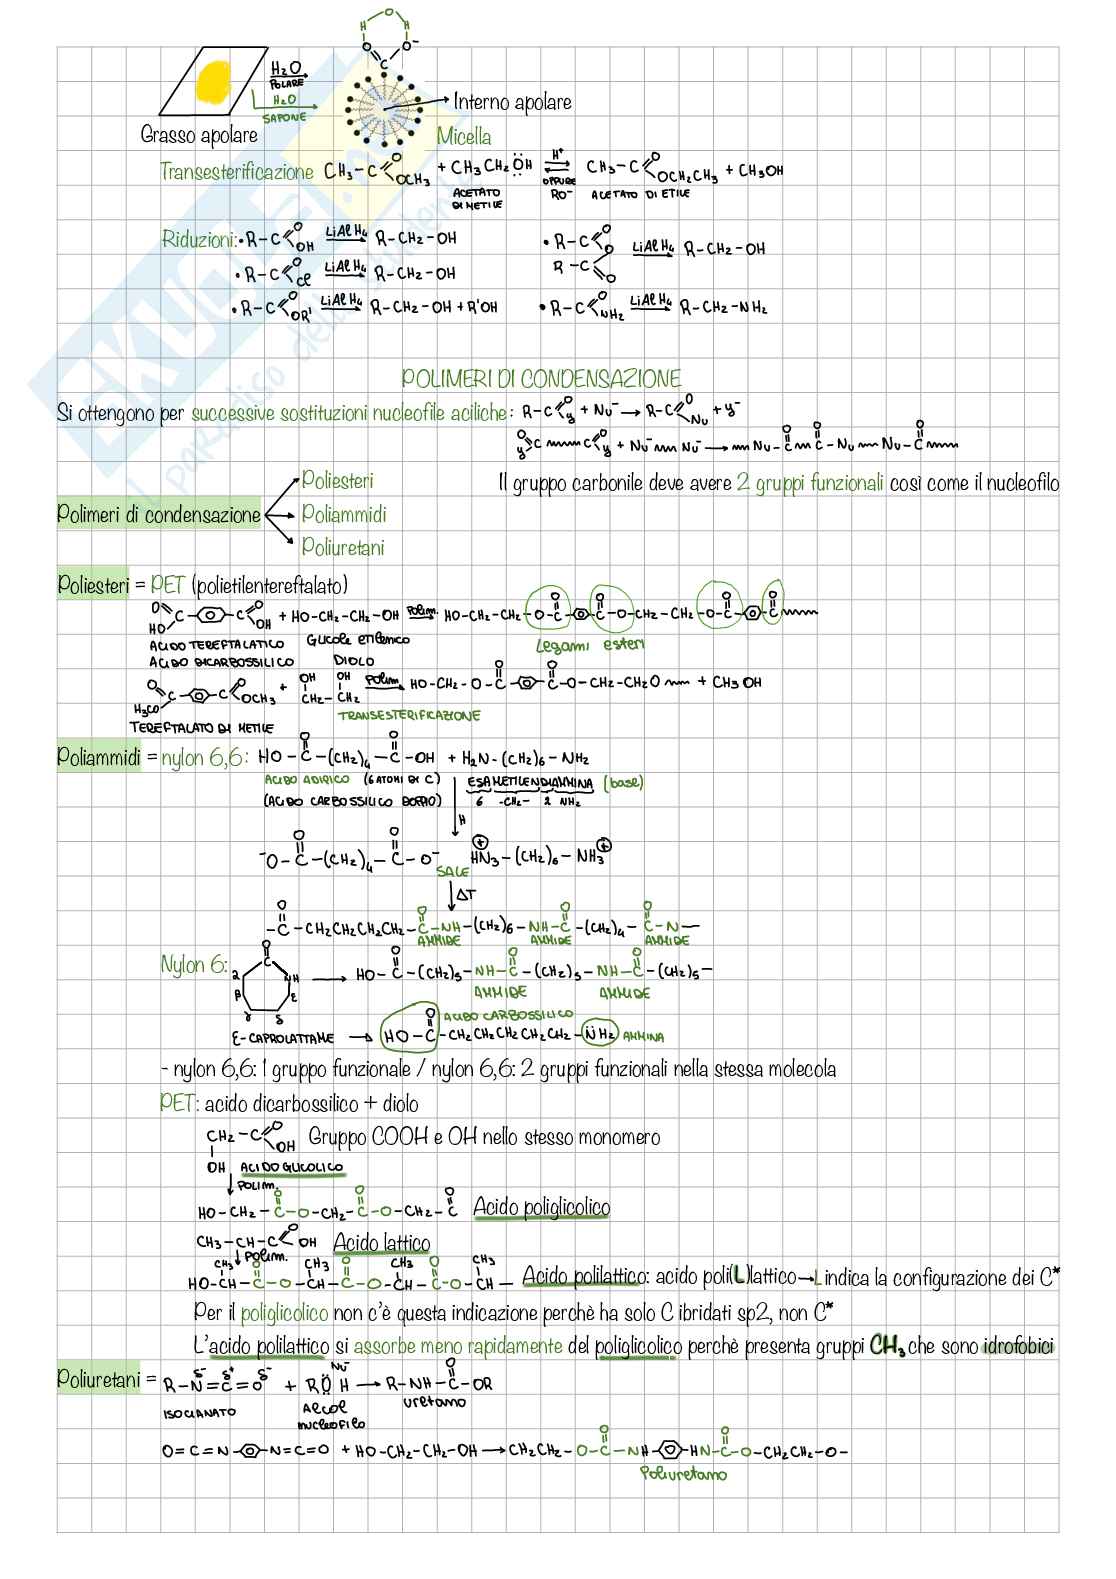 H O H
O O⁻
C
H₂O
POLARE
H₂O
SAPONE
Interno apolare
Grasso apolare
Micella
Transesterificazione CH₃-C O OCH₃ + CH₃CH₂ÖH H⁺ OPPURE RO⁻ CH₃-C O OCH₂CH₃ + CH₃OH
ACETATO DI METILE ACETATO DI ETILE
Riduzioni: • R-C O OH LiAlH₄ R-CH₂-OH • R-C O O R-C O LiAlH₄ R-CH₂-OH
• R-C O Cl LiAlH₄ R-CH₂-OH
• R-C O OR' LiAlH₄ R-CH₂-OH + R'OH • R-C O NH₂ LiAlH₄ R-CH₂-NH₂
POLIMERI DI CONDENSAZIONE
Si ottengono per successive sostituzioni nucleofile aciliche: R-C O y + Nu⁻ → R-C O Nu + y⁻
O y C C O y + Nu⁻ Nu⁻ → Nu-C O C O-Nu Nu-C O
Poliesteri Il gruppo carbonile deve avere 2 gruppi funzionali così come il nucleofilo
Polimeri di condensazione Poliammidi
Poliuretani
Poliesteri = PET (polietilentereftalato)
O HO C C O OH + HO-CH₂-CH₂-OH Polim. HO-CH₂-CH₂-O-C O C O-O-CH₂-CH₂-O-C O C O
ACIDO TEREFTALATICO GLICOLE ETILENICO Legami esteri
ACIDO DICARBOSSILICO DIOLO
O H₃CO C C O OCH₃ + OH CH₂- OH CH₂ Polim. HO-CH₂-O-C O C O-O-CH₂-CH₂O + CH₃OH
TEREFTALATO DI METILE TRANSESTERIFICAZIONE
Poliammidi = nylon 6,6: HO-C O-(CH₂)₄-C O-OH + H₂N-(CH₂)₆-NH₂
ACIDO ADIPICO (6 ATOMI DI C) ESAMETILENDIAMMINA (base)
(ACIDO CARBOSSILICO DOPPIO) 6 -CH₂- 2 NH₂
H
⁻O-C O-(CH₂)₄-C O-O⁻ HN₃⊕-(CH₂)₆-NH₃⊕
SALE
ΔT
-C O-CH₂CH₂CH₂CH₂-C O-NH-(CH₂)₆-NH-C O-(CH₂)₄-C O-N-
AMMIDE AMMIDE AMMIDE
Nylon 6: O C NH α β γ δ ε → HO-C O-(CH₂)₅-NH-C O-(CH₂)₅-NH-C O-(CH₂)₅-
AMMIDE AMMIDE
ACIDO CARBOSSILICO
ε-CAPROLATTAME → HO-C O-CH₂CH₂CH₂CH₂CH₂-NH₂ AMMINA
- nylon 6,6: 1 gruppo funzionale / nylon 6,6: 2 gruppi funzionali nella stessa molecola
PET: acido dicarbossilico + diolo
CH₂-C O OH Gruppo COOH e OH nello stesso monomero
OH ACIDO GLICOLICO
POLIM.
HO-CH₂-C O-O-CH₂-C O-O-CH₂-C O Acido poliglicolico
CH₃-CH-C O OH Acido lattico
Polim.
HO-CH CH₃-C O-O-CH CH₃-C O-O-CH CH₃-C O-O-CH CH₃- Acido polilattico: acido poli(L)lattico → L indica la configurazione dei C*
Per il poliglicolico non c'è questa indicazione perchè ha solo C ibridati sp2, non C*
L'acido polilattico si assorbe meno rapidamente del poliglicolico perchè presenta gruppi CH₃ che sono idrofobici
Poliuretani = R-N=C=O δ⁻ δ⁺ δ⁻ + RÖH Nu⁻ → R-NH-C O-OR
ISOCIANATO Alcol nucleofilo uretano
O=C=N- -N=C=O + HO-CH₂-CH₂-OH → CH₂CH₂-O-C O-NH- -HN-C O-O-CH₂CH₂-O-
Poliuretano
SKUOLA.net
il paradiso dello studente